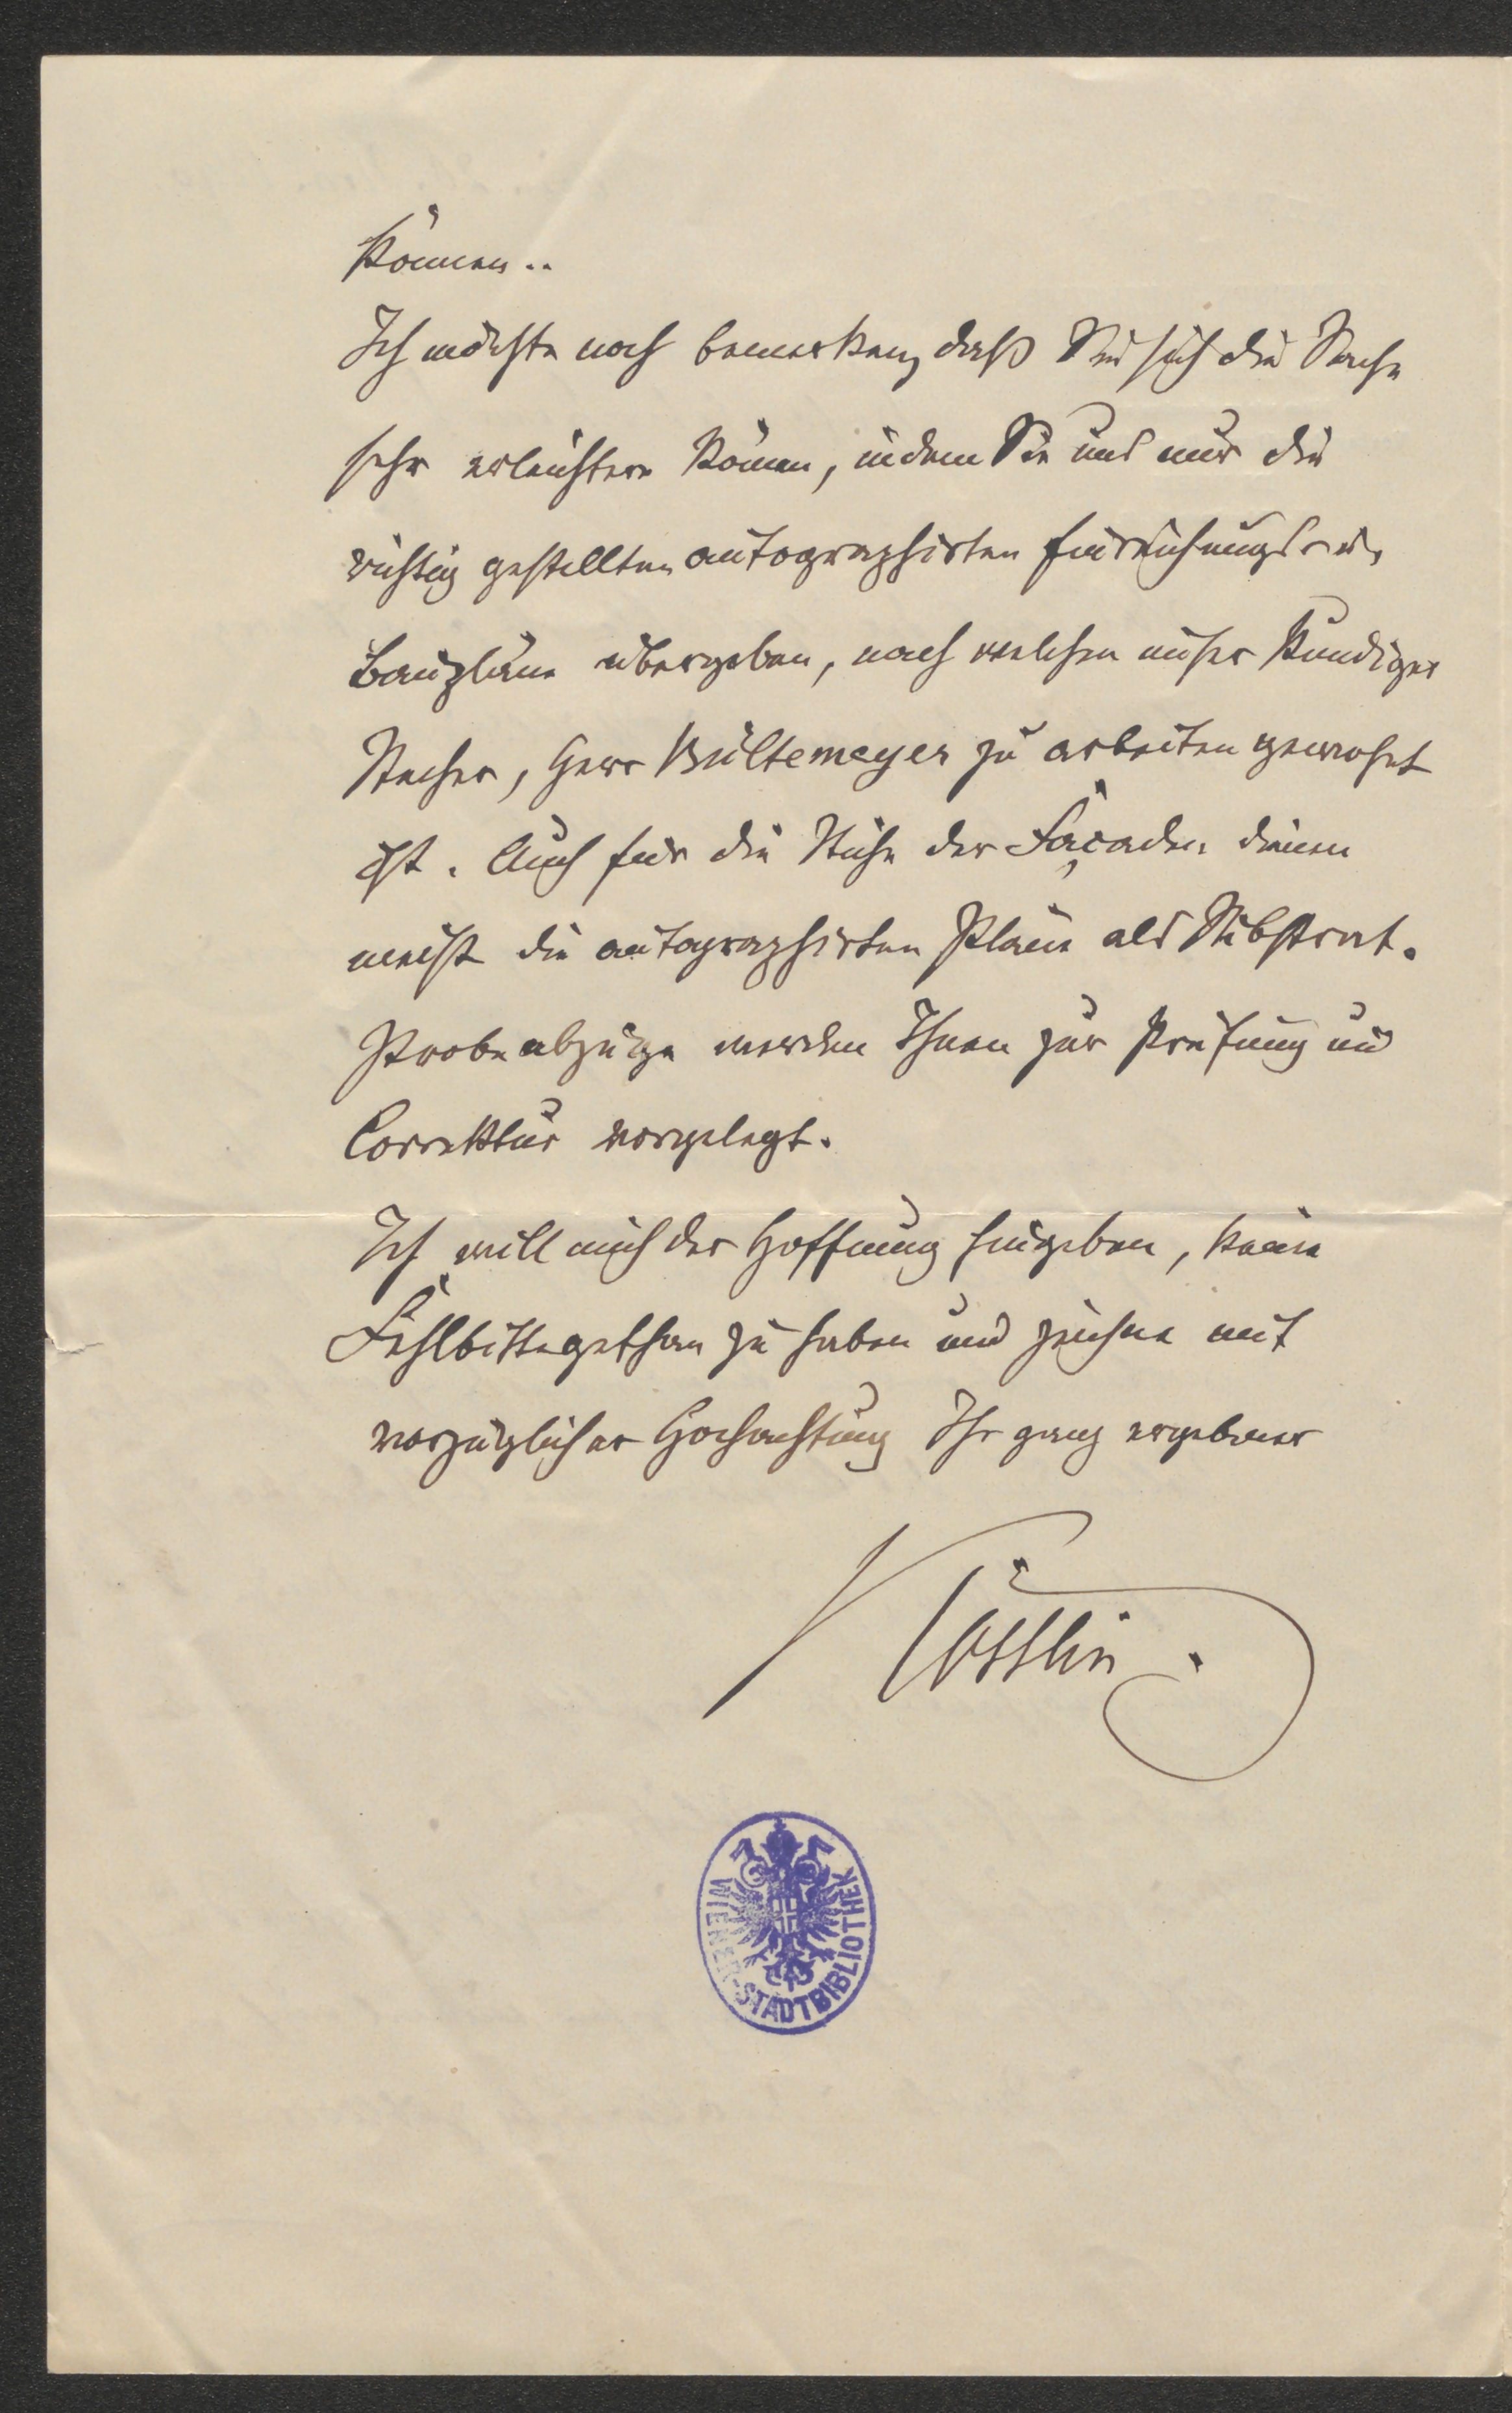 können..
Ich möchte noch bemerken, daß Sie sich die Sache
sehr erleichtern können, indem Sie uns nur die
richtig gestellten autographirten Einreichungs- u.
Baupläne übergeben, nach welchen unser kundiger
Stecher, Herr Bültemeyer zu arbeiten gewohnt
ist. Auch für die Stiche der Façaden dienen
meist die autographirten Pläne als Substrat.
Probeabzüge werden Ihnen zur Prüfung und
Correktur vorgelegt.
Ich will mich der Hoffnung hingeben, keine
Fehlbitte gethan zu haben und zeichne mit
vorzüglicher Hochachtung Ihr ganz ergebener
Köstlin.
WIENER-STADTBIBLIOTHEK